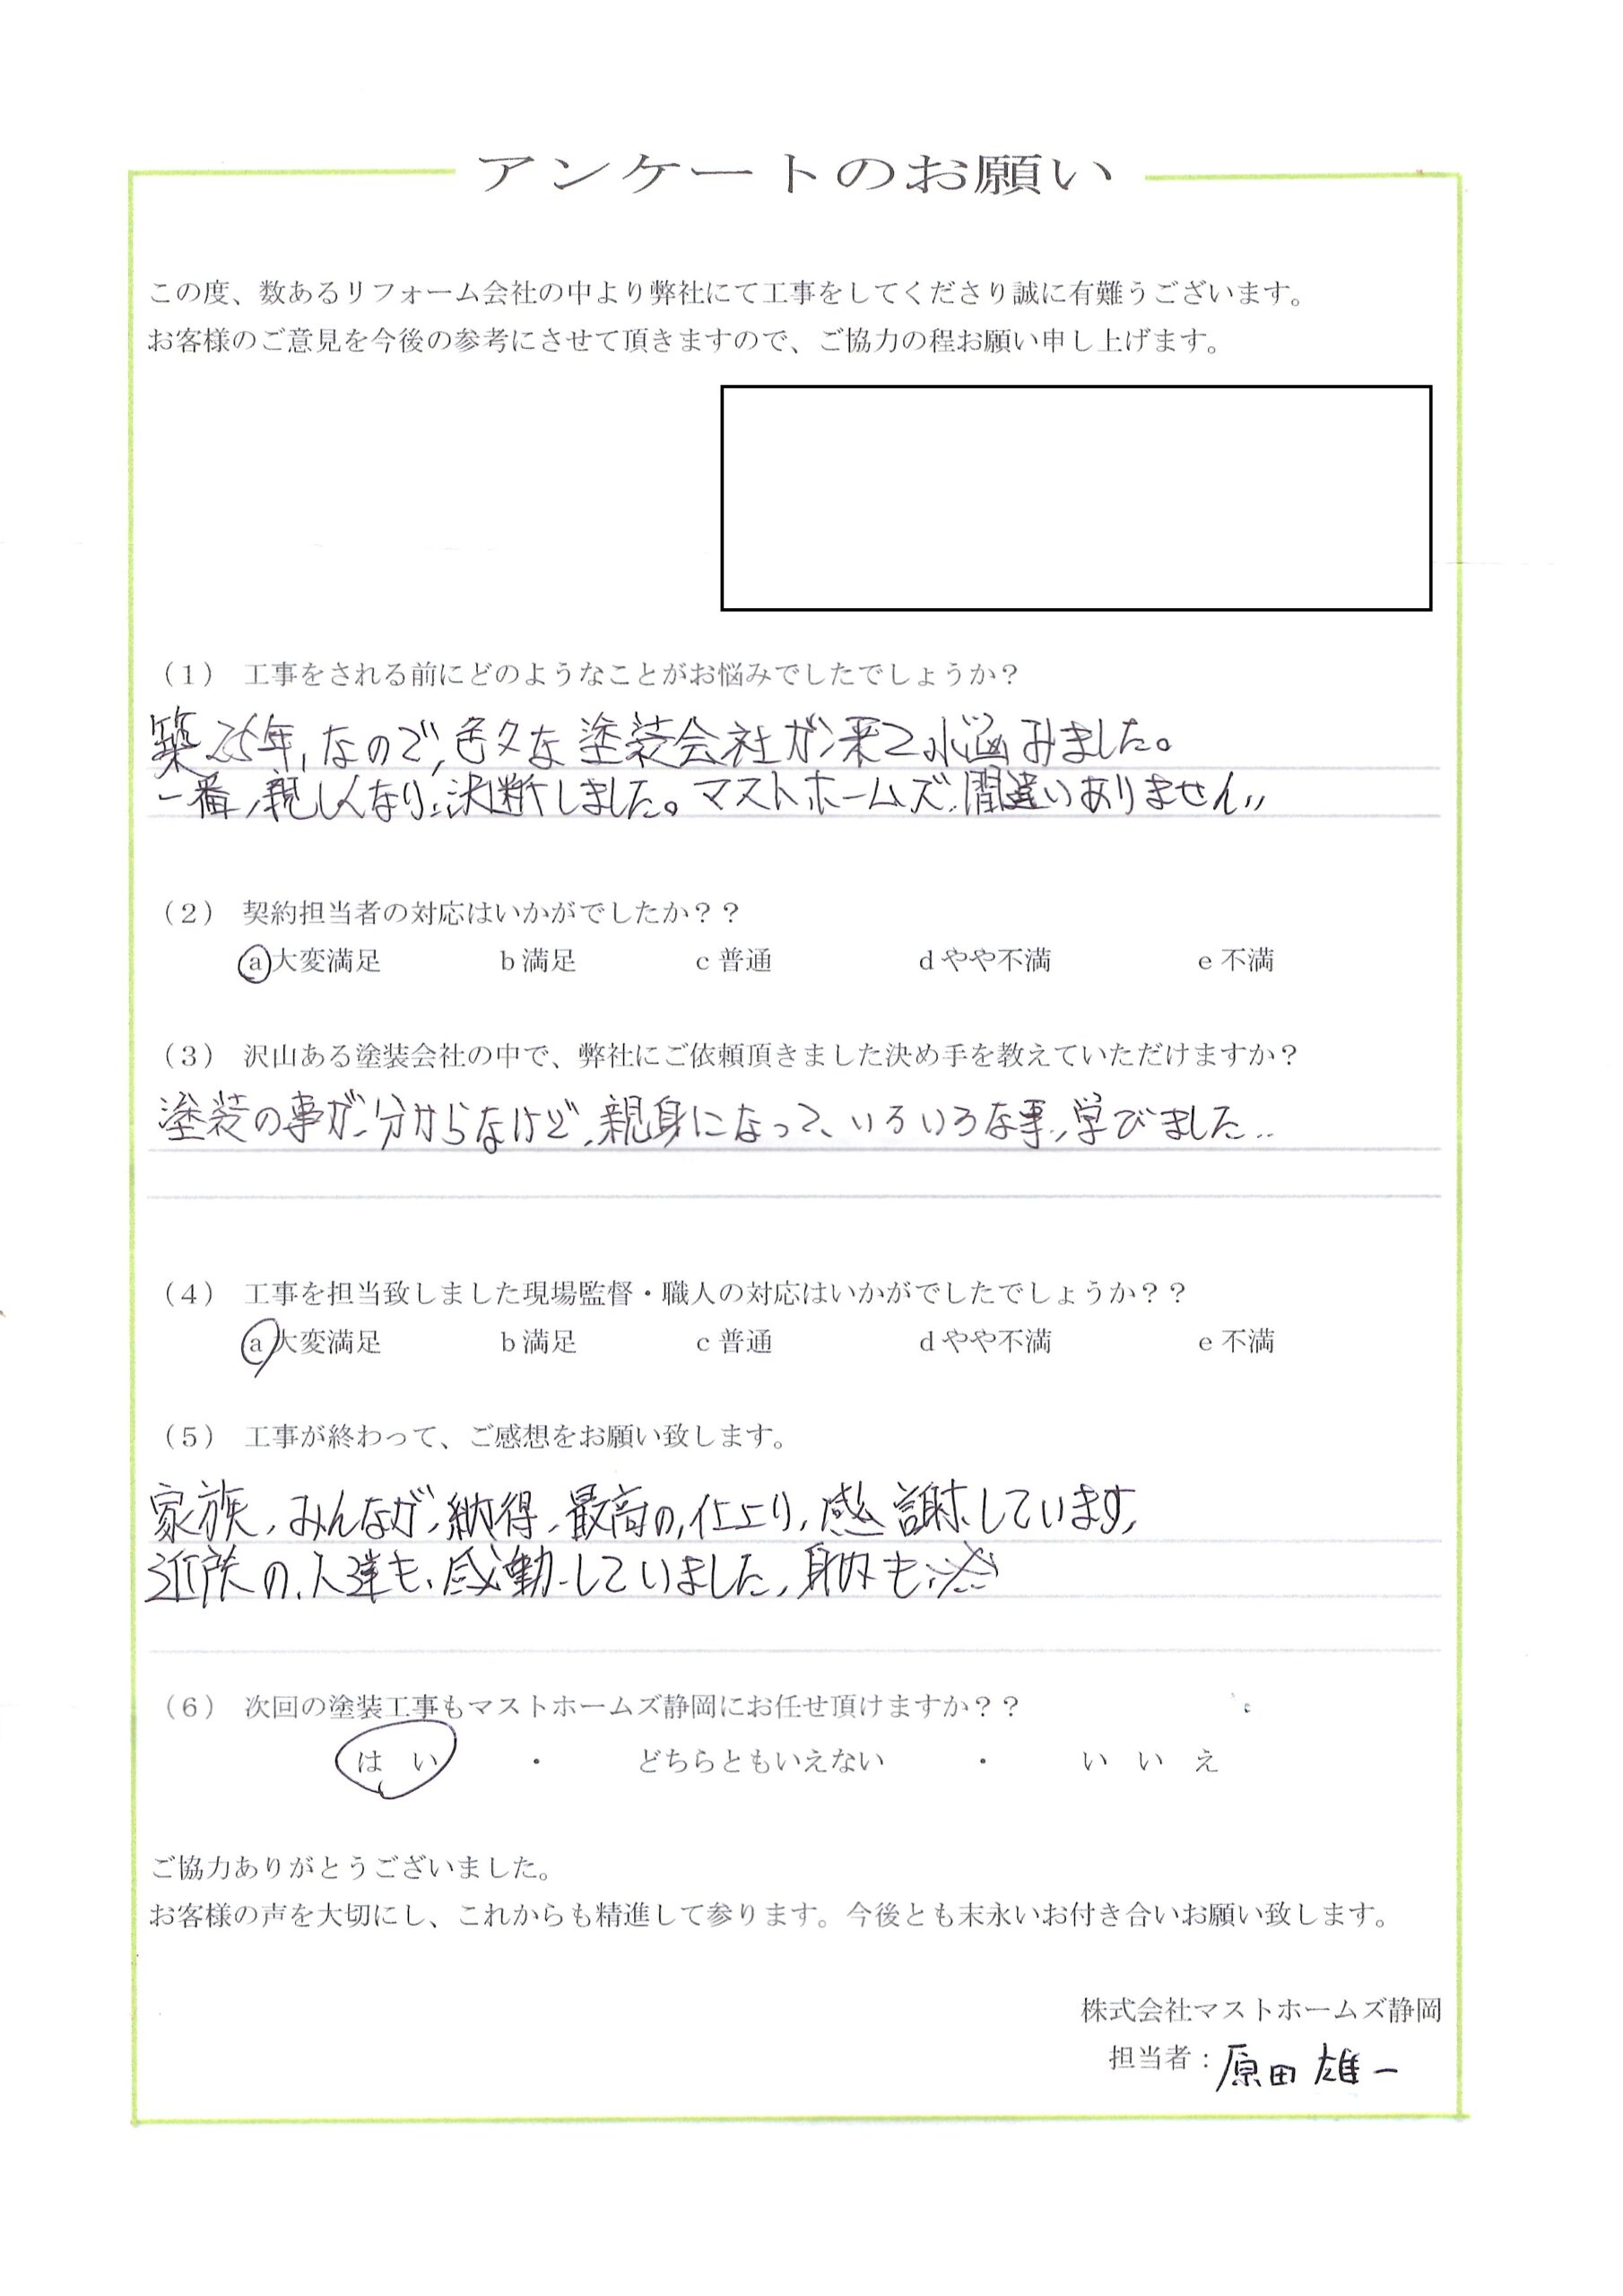 アンケートのお願い
この度、数あるリフォーム会社の中より弊社にて工事をしてくださり誠に有難うございます。
お客様のご意見を今後の参考にさせて頂きますので、ご協力の程お願い申し上げます。
（1） 工事をされる前にどのようなことがお悩みでしたでしょうか？
築25年、なので、色々な塗装会社が来て悩みました。
一番、親しくなり、決断しました。マストホームズ、間違いありません、、
（2） 契約担当者の対応はいかがでしたか？？
a 大変満足 b 満足 c 普通 d やや不満 e 不満
（3） 沢山ある塗装会社の中で、弊社にご依頼頂きました決め手を教えていただけますか？
塗装の事が、分からなけど、親身になって、いろいろな事、学びました..
（4） 工事を担当致しました現場監督・職人の対応はいかがでしたでしょうか？？
a 大変満足 b 満足 c 普通 d やや不満 e 不満
（5） 工事が終わって、ご感想をお願い致します。
家族、みんなが、納得、最高の、仕上り、感謝しています、
近所の、人達も、感動していました、身内も、
（6） 次回の塗装工事もマストホームズ静岡にお任せ頂けますか？？
はい ・ どちらともいえない ・ いいえ
ご協力ありがとうございました。
お客様の声を大切にし、これからも精進して参ります。今後とも末永いお付き合いお願い致します。
株式会社マストホームズ静岡
担当者：原田 雄一